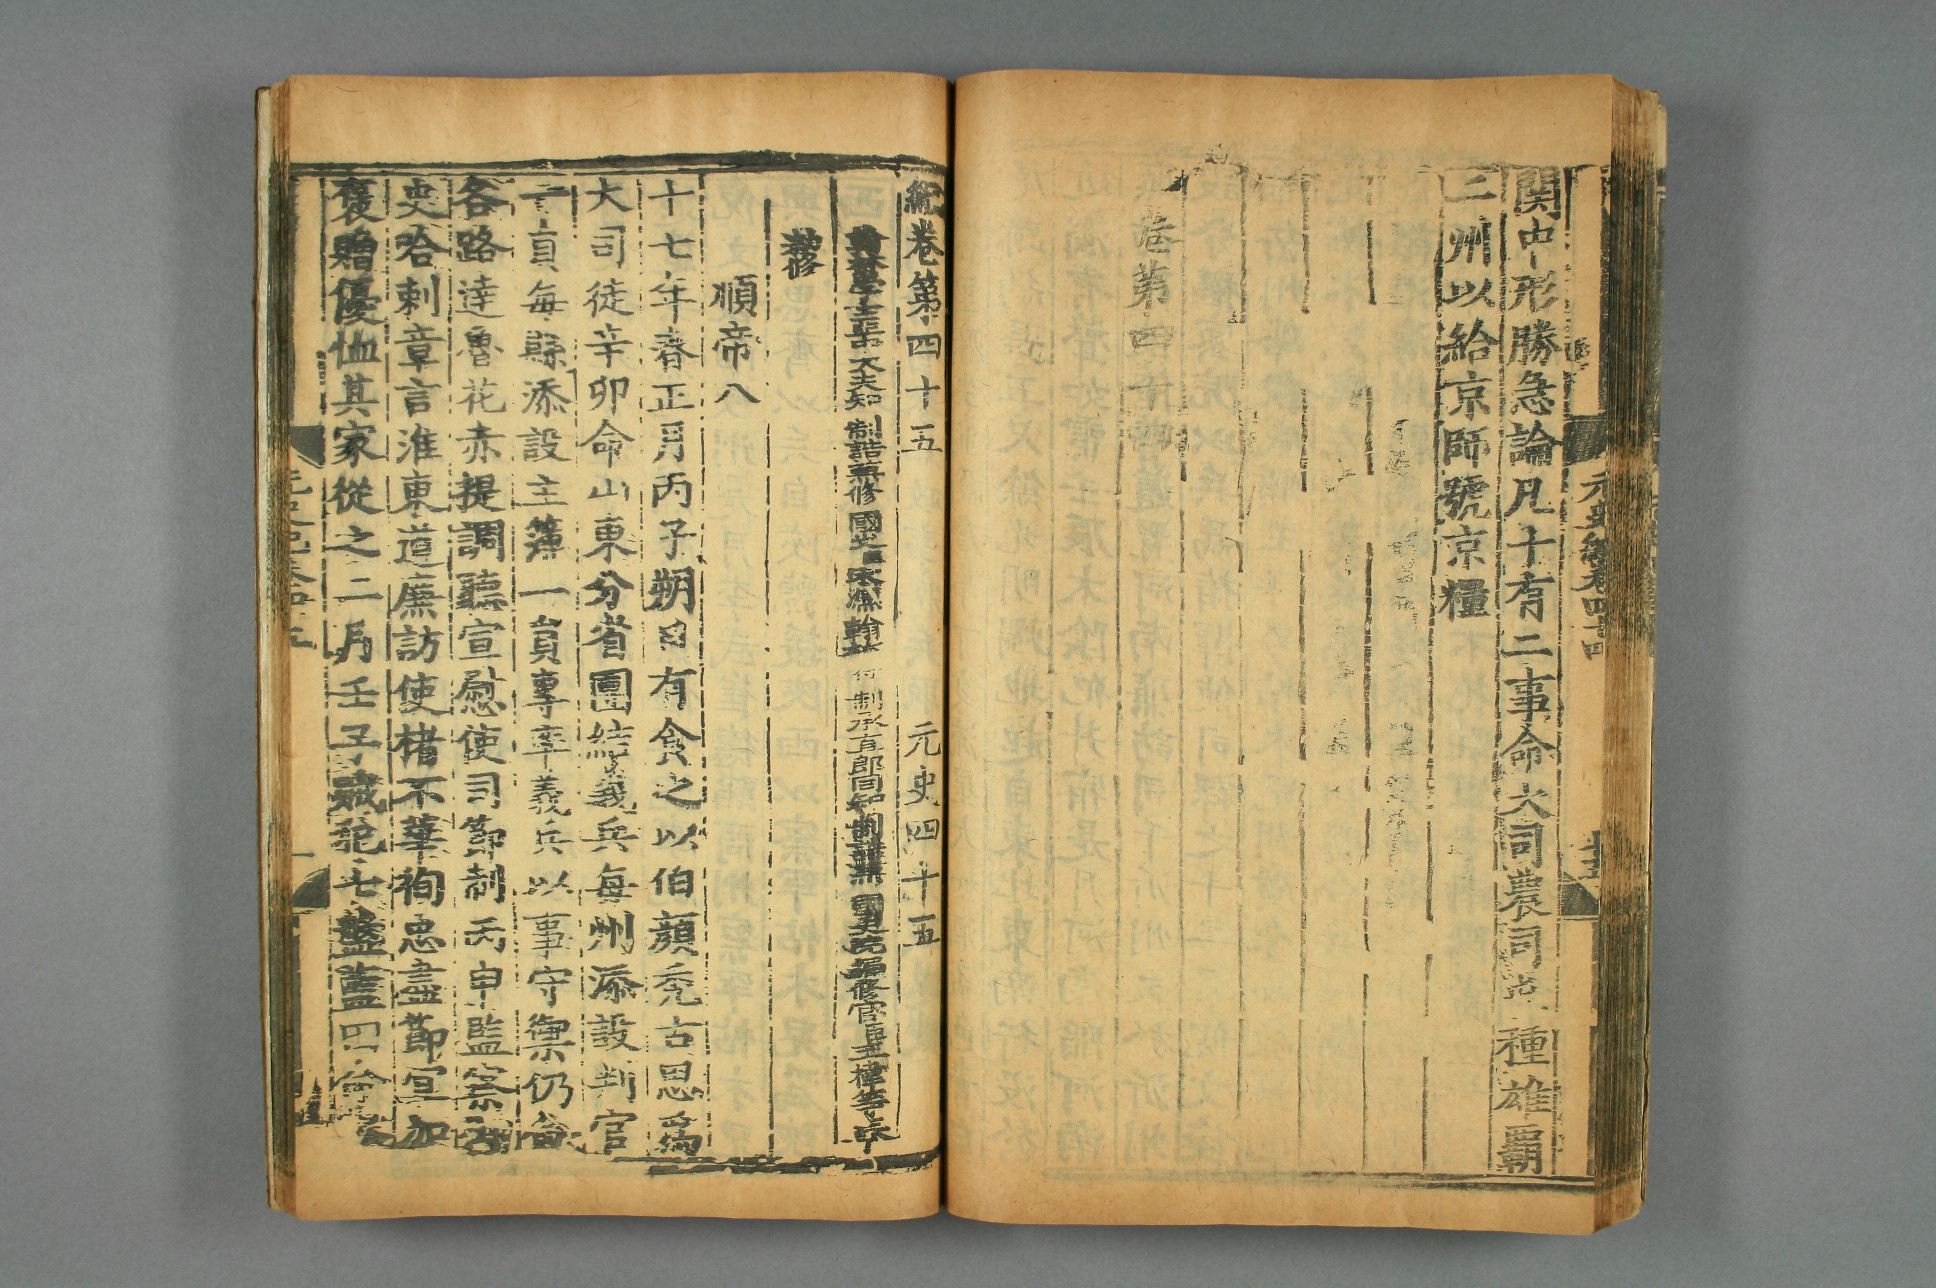 関中形勝急論凡十有二事命大司農司 種雄覇
二州以給京師號京糧
卷第四十四
元史紀卷四十四
紀卷第四十五 元史四十五
翰林學士亞中大夫知制誥兼修國史臣宋濂翰林待制承直郎同知制誥兼國史院編修官臣王禕等奉
勅修
順帝八
十七年春正月丙子朔日有食之以伯顔禿古思爲
大司徒辛卯命山東分省團結義兵每州添設判官
一員每縣添設主簿一員專率義兵以事守禦仍命
各路達魯花赤提調聽宣慰使司節制丙申監察御
史哈剌章言淮東道廉訪使褚不華徇忠盡節宜加
褒贈優恤其家從之二月壬子賊犯七盤藍田命